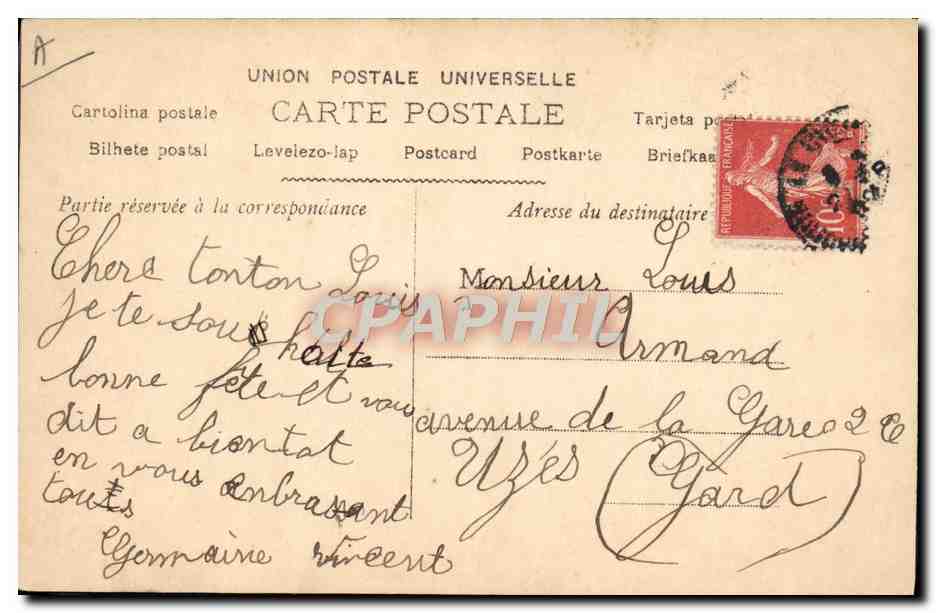 A
UNION POSTALE UNIVERSELLE
Cartolina postale CARTE POSTALE Tarjeta
Bilhete postal Levelezo-lap Postcard Postkarte Briefkaa
Partie réservée à la correspondance
Adresse du destinataire
REPUBLIQUE FRANÇAISE
10
Chere tonton Louis
je te souhaitte
bonne fête et vous
dit a bientat
en vous anbrassant
touts
Germaine vincent
Monsieur Louis
Armand
avenue de la Gare 2
Uzés (Gard)
CPAPHIL